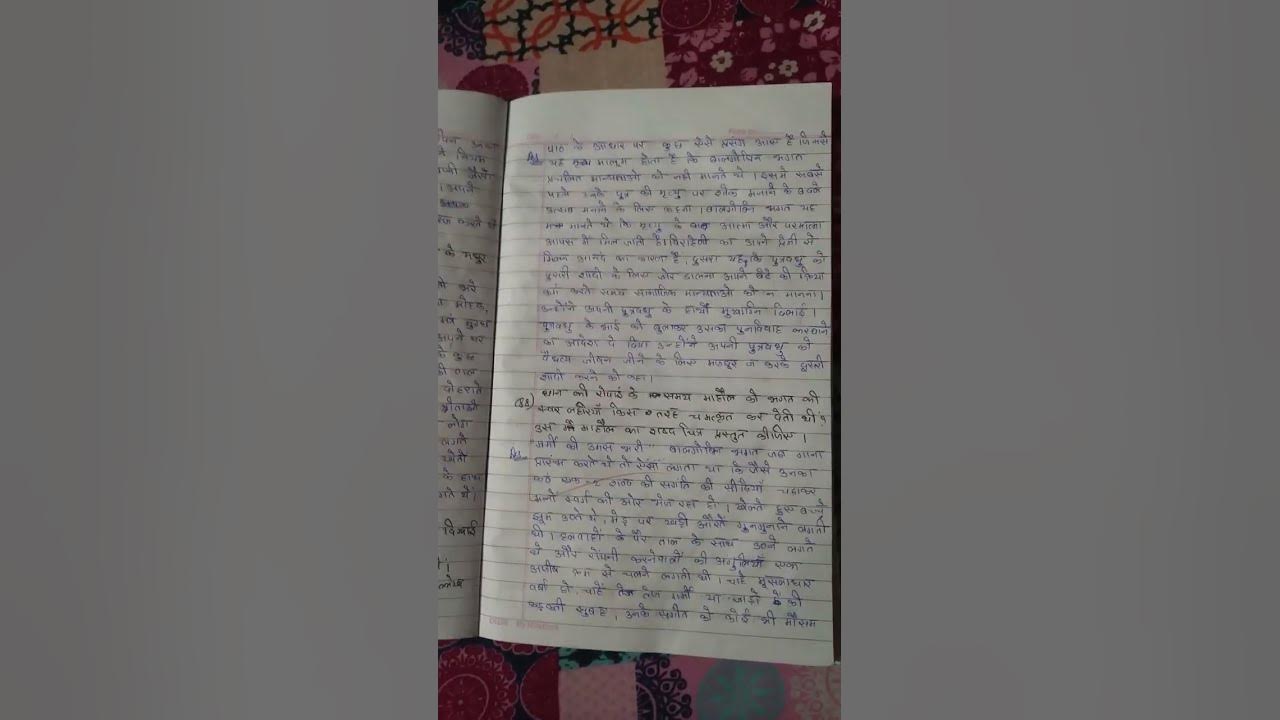 पन
नियम
अपनी
के मधुर
दोहराते
लोग
लगते
के हाथ
दिखाई
Ans पाठ के आधार पर कुछ ऐसे प्रसंग आए है जिनसे
यह मालूम होता है कि बालगोबिन भगत
प्रचलित मान्यताओ को नही मानते थे । इसमे सबसे
पहले उनके पुत्र की मृत्यु पर शोक मनाने के बदले
उत्सव मनाने के लिए कहना । बालगोबिन भगत यह
मानते थे कि मृत्यु के बाद आत्मा और परमात्मा
आपस में मिल जाती है। विरहिणी का अपने प्रेमी से
मिलन आनंद का कारण है । दुसरा यह कि पुत्रवधु को
दुसरी शादी के लिए जोर डालना अपने बेटे की क्रिया
कर्म करते समय सामाजिक मान्यताओ को न मानना।
उन्होंने अपनी पुत्रवधु के हाथों मुखाग्नि दिलाई ।
पुत्रवधु के भाई को बुलाकर उसका पुनविवाह करवाने
का आदेश दे दिया उन्होंने अपनी पुत्रवधु को
वैधव्य जीवन जीने के लिए मजबूर न करके दुसरी
शादी करने को कहा ।
(Q8) धान की रोपाई के समय माहौल को भगत की
स्वर लहरियाँ किस तरह चमत्कृत कर देती थी ?
उस माहौल का शब्द चित्र प्रस्तुत कीजिए ।
Ans गर्मी की उमस भरी बालगोबिन भगत जब गाना
प्रारंभ करते थे तो ऐसा लगता था कि जैसे उनका
कंठ एक-२ शब्द को संगीत की सीढियाँ चढ़ाकर
मानो स्वर्ग की ओर भेज रहा हो । खेलते हुए बच्चे
झूम उठते थे, मेड़ पर खड़ी औरतें गुनगुनाने लगती
थी । हलवाहों के पैर ताल के साथ उठने लगते
थे और रोपनी करनेवालों की अंगुलियाँ एक
अजीब क्रम से चलने लगती थी । चाहे मूसलाधार
वर्षा हो, चाहे तेज गर्मी या जाड़ो की
कड़कती सुबह, उनके संगीत को कोई भी मौसम